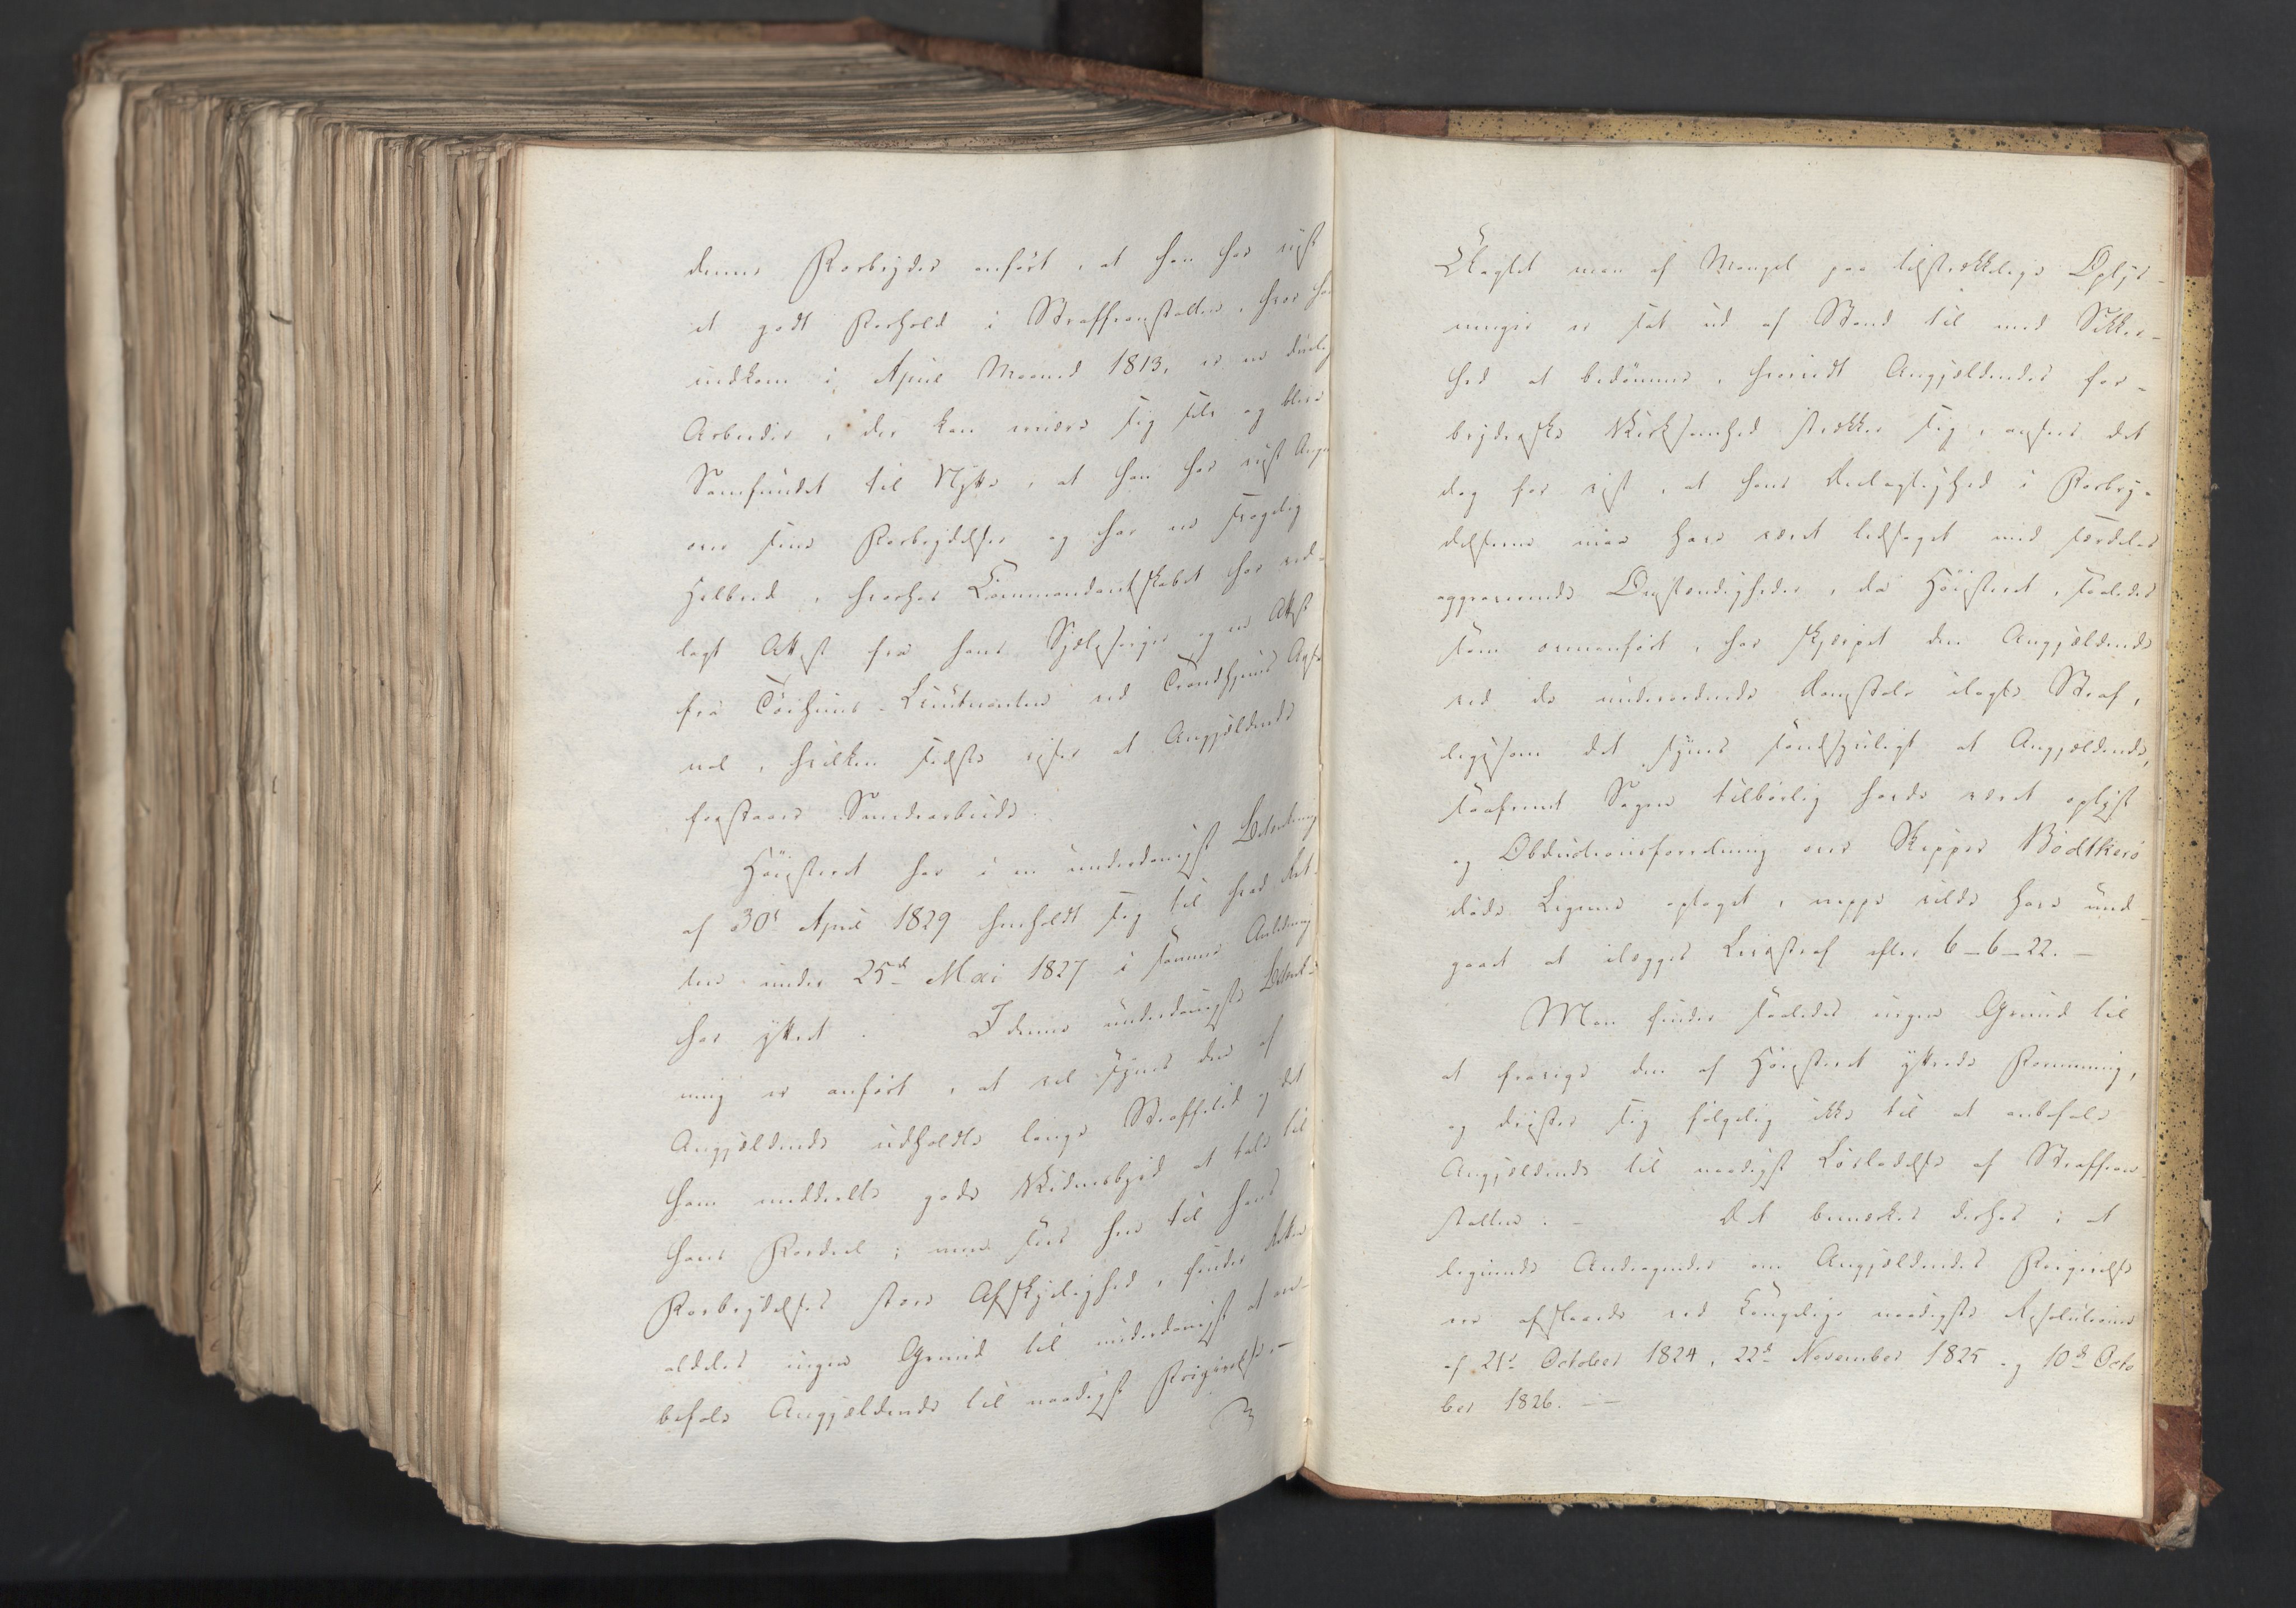 denne Forbryder anført, at han har viist
et godt Forhold i Straffeanstalten, hvor han
indkom i April Maaned 1813, er en duelig
Arbeider, der kan ernære sig selv og blive
Samfundet til Nytte, at han har viist Anger
over sine Forbrydelser og har en svagelig
Helbred, hvorhos Commandantskabet har ved-
lagt Attest fra hans Sjælesørger og en Attest
fra Tøihuus-Lieutnanten ved Trondhjems Arse-
nal, hvilken sidste viser at Angjældende
forstaaer Smedearbeide.
Høiesteret har i en underdanigst Betænkning
af 30te April 1829 henholdt sig til hvad Ret-
ten under 25de Mai 1827 i samme Anledning
har yttret. I denne underdanigste Betænk-
ning er anført, at vel synes den af
Angjældende udholdte lange Straffetid og det
ham meddeelte gode Vidnesbyrd at tale til
hans Fordeel; men sees hen til hans
Forbrydelses store Afskyelighed, finder Retten
aldeles ingen Grund til underdanigst at an-
befale Angjældende til naadigst Frigivelse. —
Uagtet man af Mangel paa tilstrækkelige Oplys-
ninger er sat ud af Stand til med Sikker-
hed at bedømme, hvorvidt Angjældendes for-
bryderske Virksomhed strækker sig, ansees det
dog for vist, at hans Deelagtighed i Forbry-
delserne maa have været ledsaget med særdeles
aggraverende Omstændigheder, da Høiesteret, saaledes
som ovenanført, har skjærpet den Angjældende
ved de underordnede Domstole ilagte Straf,
ligesom det synes sandsynligt at Angjældende,
saafremt Sagen tilbørlig havde været oplyst
og Obductionsforretning over Skipper Bødtkers
døde Legeme optaget, neppe vilde have und-
gaaet at ilægges Livsstraf efter 6–6–22. —
Man finder saaledes ingen Grund til
at fravige den af Høiesteret yttrede Formening,
og drister sig følgelig ikke til at anbefale
Angjældende til naadigst Løsladelse af Straffean-
stalten. — Det bemærkes derhos, at
lignende Andragender om Angjældendes Frigivelse
ere afslaaede ved Kongelige naadigste Resolutioner
af 21de October 1824, 22de November 1825 og 10de Octo
ber 1826. —